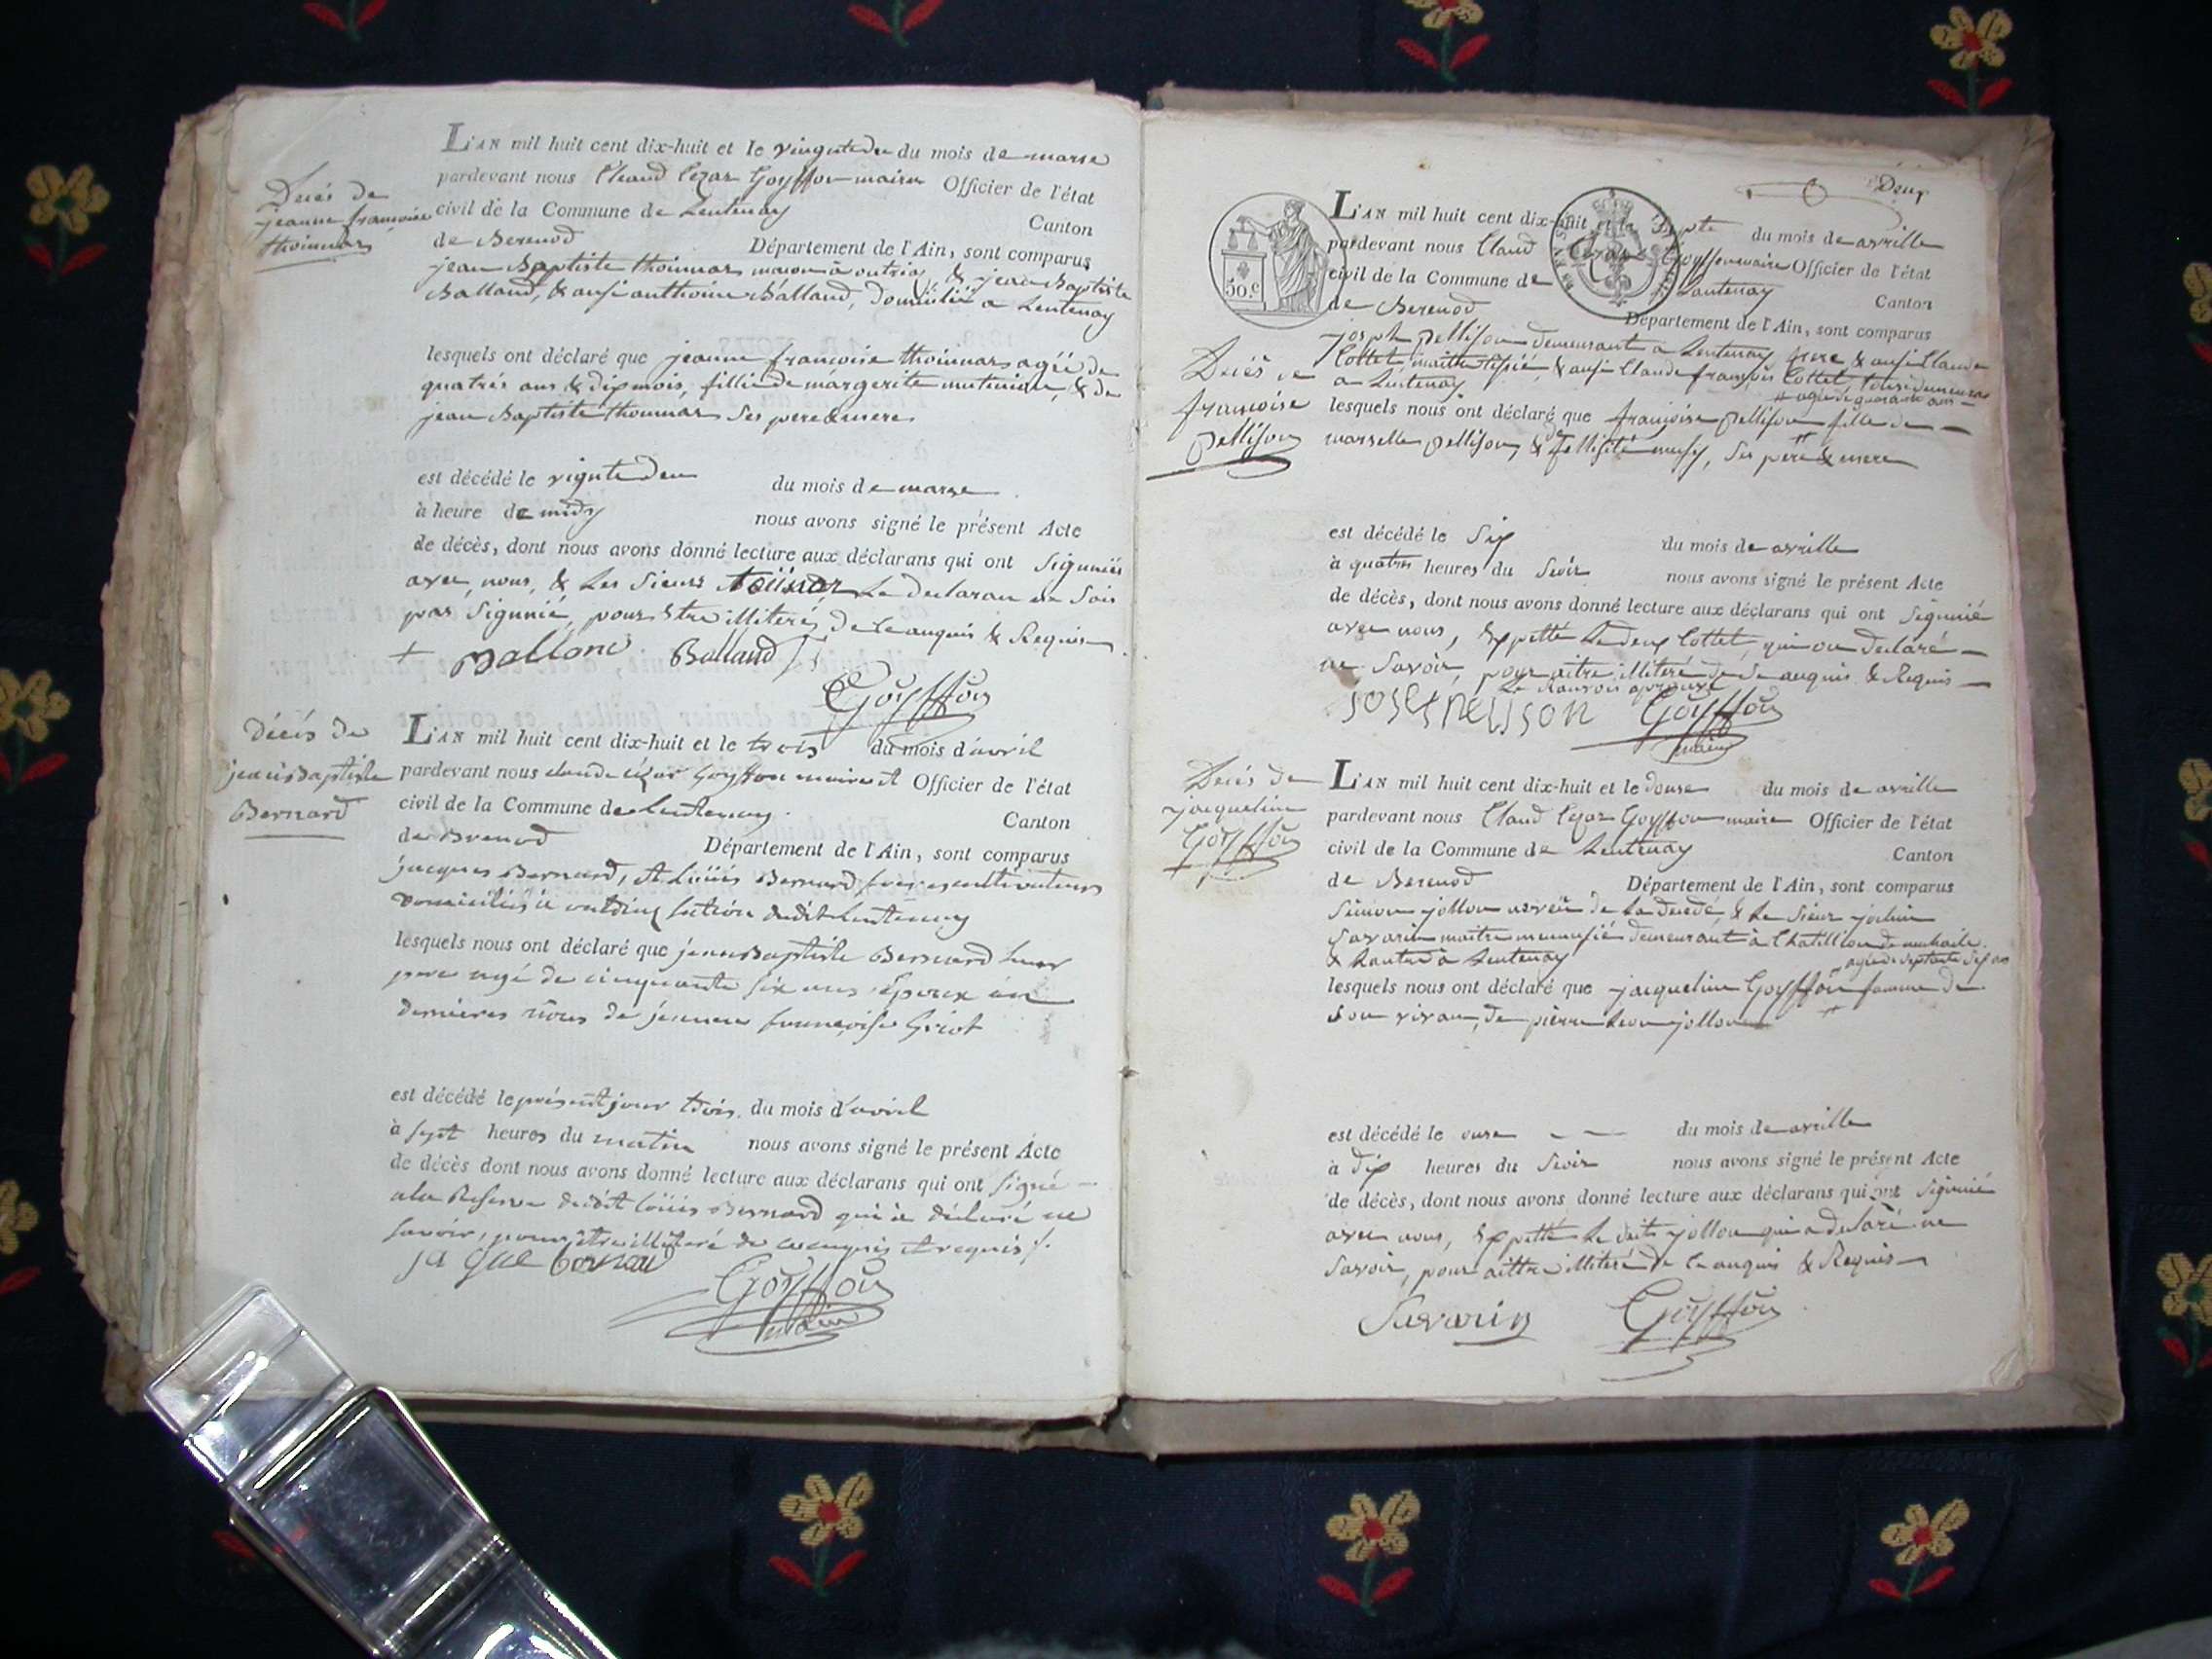 Décés de
jeanne francoise
thoinnar
L'AN mil huit cent dix-huit et le vingte deu du mois de marse
pardevant nous Cleaud Cezar Goyffon maire Officier de l'état
civil de la Commune de Lentenay Canton
de Berenod Département de l'Ain, sont comparus
jean Baptiste thoinnar maion à outria, & jean Baptiste
Balland, & ausi anthoine Balland, domicilié a Lentenay
lesquels ont déclaré que jeanne francoise thoinnar agée de
quatrés ans & dix mois, fille de margerite & de
jean Baptiste thoinnar ses pere & mere
est décédé le vignte deu du mois de marse
à heure de midy nous avons signé le présent Acte
de décès, dont nous avons donné lecture aux déclarans qui ont signués
avec nous, & Les Sieurs Le declaran ne Sais
pas Signuié, pour Etre illiteré de ce anquis & Requis
+ Ballone Balland
Goyffon
Décés de
jean Baptiste
Bernard
L'AN mil huit cent dix-huit et le trois du mois d'avril
pardevant nous claude cézar Goyffon maire et Officier de l'état
civil de la Commune de Lentenay Canton
de Brenod Département de l'Ain, sont comparus
jacques Bernard, et Loüis Bernard freres cultivateurs
domiciliés à section dudit Lentenay
lesquels nous ont déclaré que jean Baptiste Bernard leur
pere agé de cinquante six ans, Epoux en
dernieres nôces de jeanne francoise Griot
est décédé le présent jour trois du mois d'avril
à sept heures du matin nous avons signé le présent Acte
de décès dont nous avons donné lecture aux déclarans qui ont signé
a la Reserve dudit Loüis Bernard qui à déclaré ne
savoir, pour être illiteré de ce enquis et requis
ja que bernard
Goyffon
maire
Deux
L'AN mil huit cent dix-huit et le Septe du mois de avrille
pardevant nous Claud Cezar Goyffon maire Officier de l'état
civil de la Commune de Lantenay Canton
de Berenod Département de l'Ain, sont comparus
50.c
Décés de
françoise
Pellison
joseph Pellison demeurant a Lentenay frere & ausi Claude
Cottet, maitre & ausi Claude françois Cottet, tous demeurant
a Lentenay
# agée de quarante ans
lesquels nous ont déclaré que françoise Pellison fille de
marselle Pellison, & de fellisité ses pere & mere
est décédé le Six du mois de avrille
à quatres heures du Soir nous avons signé le présent Acte
de décès, dont nous avons donné lecture aux déclarans qui ont Signuié
avec nous, Expetté Le deux Cottet, qui on declaré
ne Savoir, pour aitre illiteré de ce anquis & Requis
Le Ranvois aprouvé
Goyffon
maire
Décés de
jacqueline
Goyffon
L'AN mil huit cent dix-huit et le douse du mois de avrille
pardevant nous Claud Cezar Goyffon maire Officier de l'état
civil de la Commune de Lentenay Canton
de Berenod Département de l'Ain, sont comparus
Simon jollon neveu de La decedé, & Le Sieur
Savarin maitre demeurant à Chatillion de
& Lautre à Lentenay
# agée de septante Sep ans
lesquels nous ont déclaré que jacqueline Goyffon famme de
son vivan, de pierre jollon
est décédé le onse du mois de avrille
à dix heures du Soir nous avons signé le présent Acte
de décès, dont nous avons donné lecture aux déclarans qui ont Signuié
avec nous, Expetté Le dit jollon qui a declaré ne
Savoir, pour aittre illiteré de Ce anquis & Requis
Savarin Goyffon